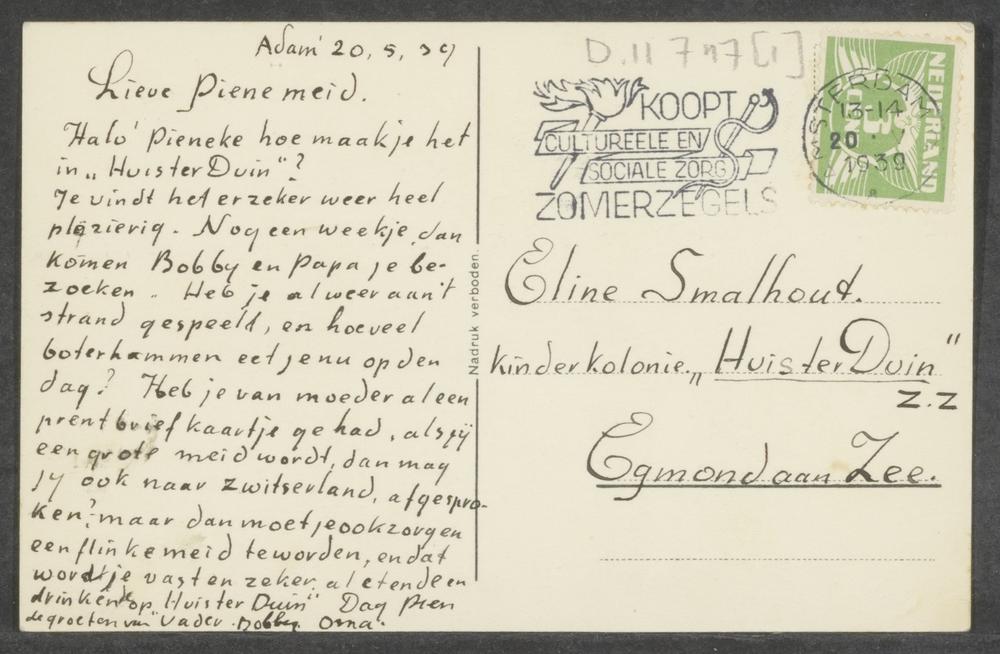 A'dam 20, 5, 39
Lieve Piene meid.
Halo' Pieneke hoe maak je het
in „Huis ter Duin"?
Je vindt het er zeker weer heel
plezierig. Nog een weekje, dan
komen Bobby en Papa je be-
zoeken. Heb je al weer aan't
strand gespeeld, en hoeveel
boterhammen eet je nu op den
dag? Heb je van moeder al een
prentbriefkaartje gehad, als jij
een grote meid wordt, dan mag
jij ook naar Zwitserland, afgespro-
ken? maar dan moet je ook zorgen
een flinke meid te worden, en dat
wordt je vast en zeker, al etende en
drinkende op „Huis ter Duin" Dag Pien
de groeten van Vader. Bobby. Oma.
Nadruk verboden.
D.11 7717 [1]
KOOPT
CULTUREELE EN
SOCIALE ZORG
ZOMERZEGELS
AMSTERDAM
13-14
20 V
1939
NEDERLAND
3 C
Eline Smalhout.
kinderkolonie „Huis ter Duin"
Z.Z
Egmond aan Zee.